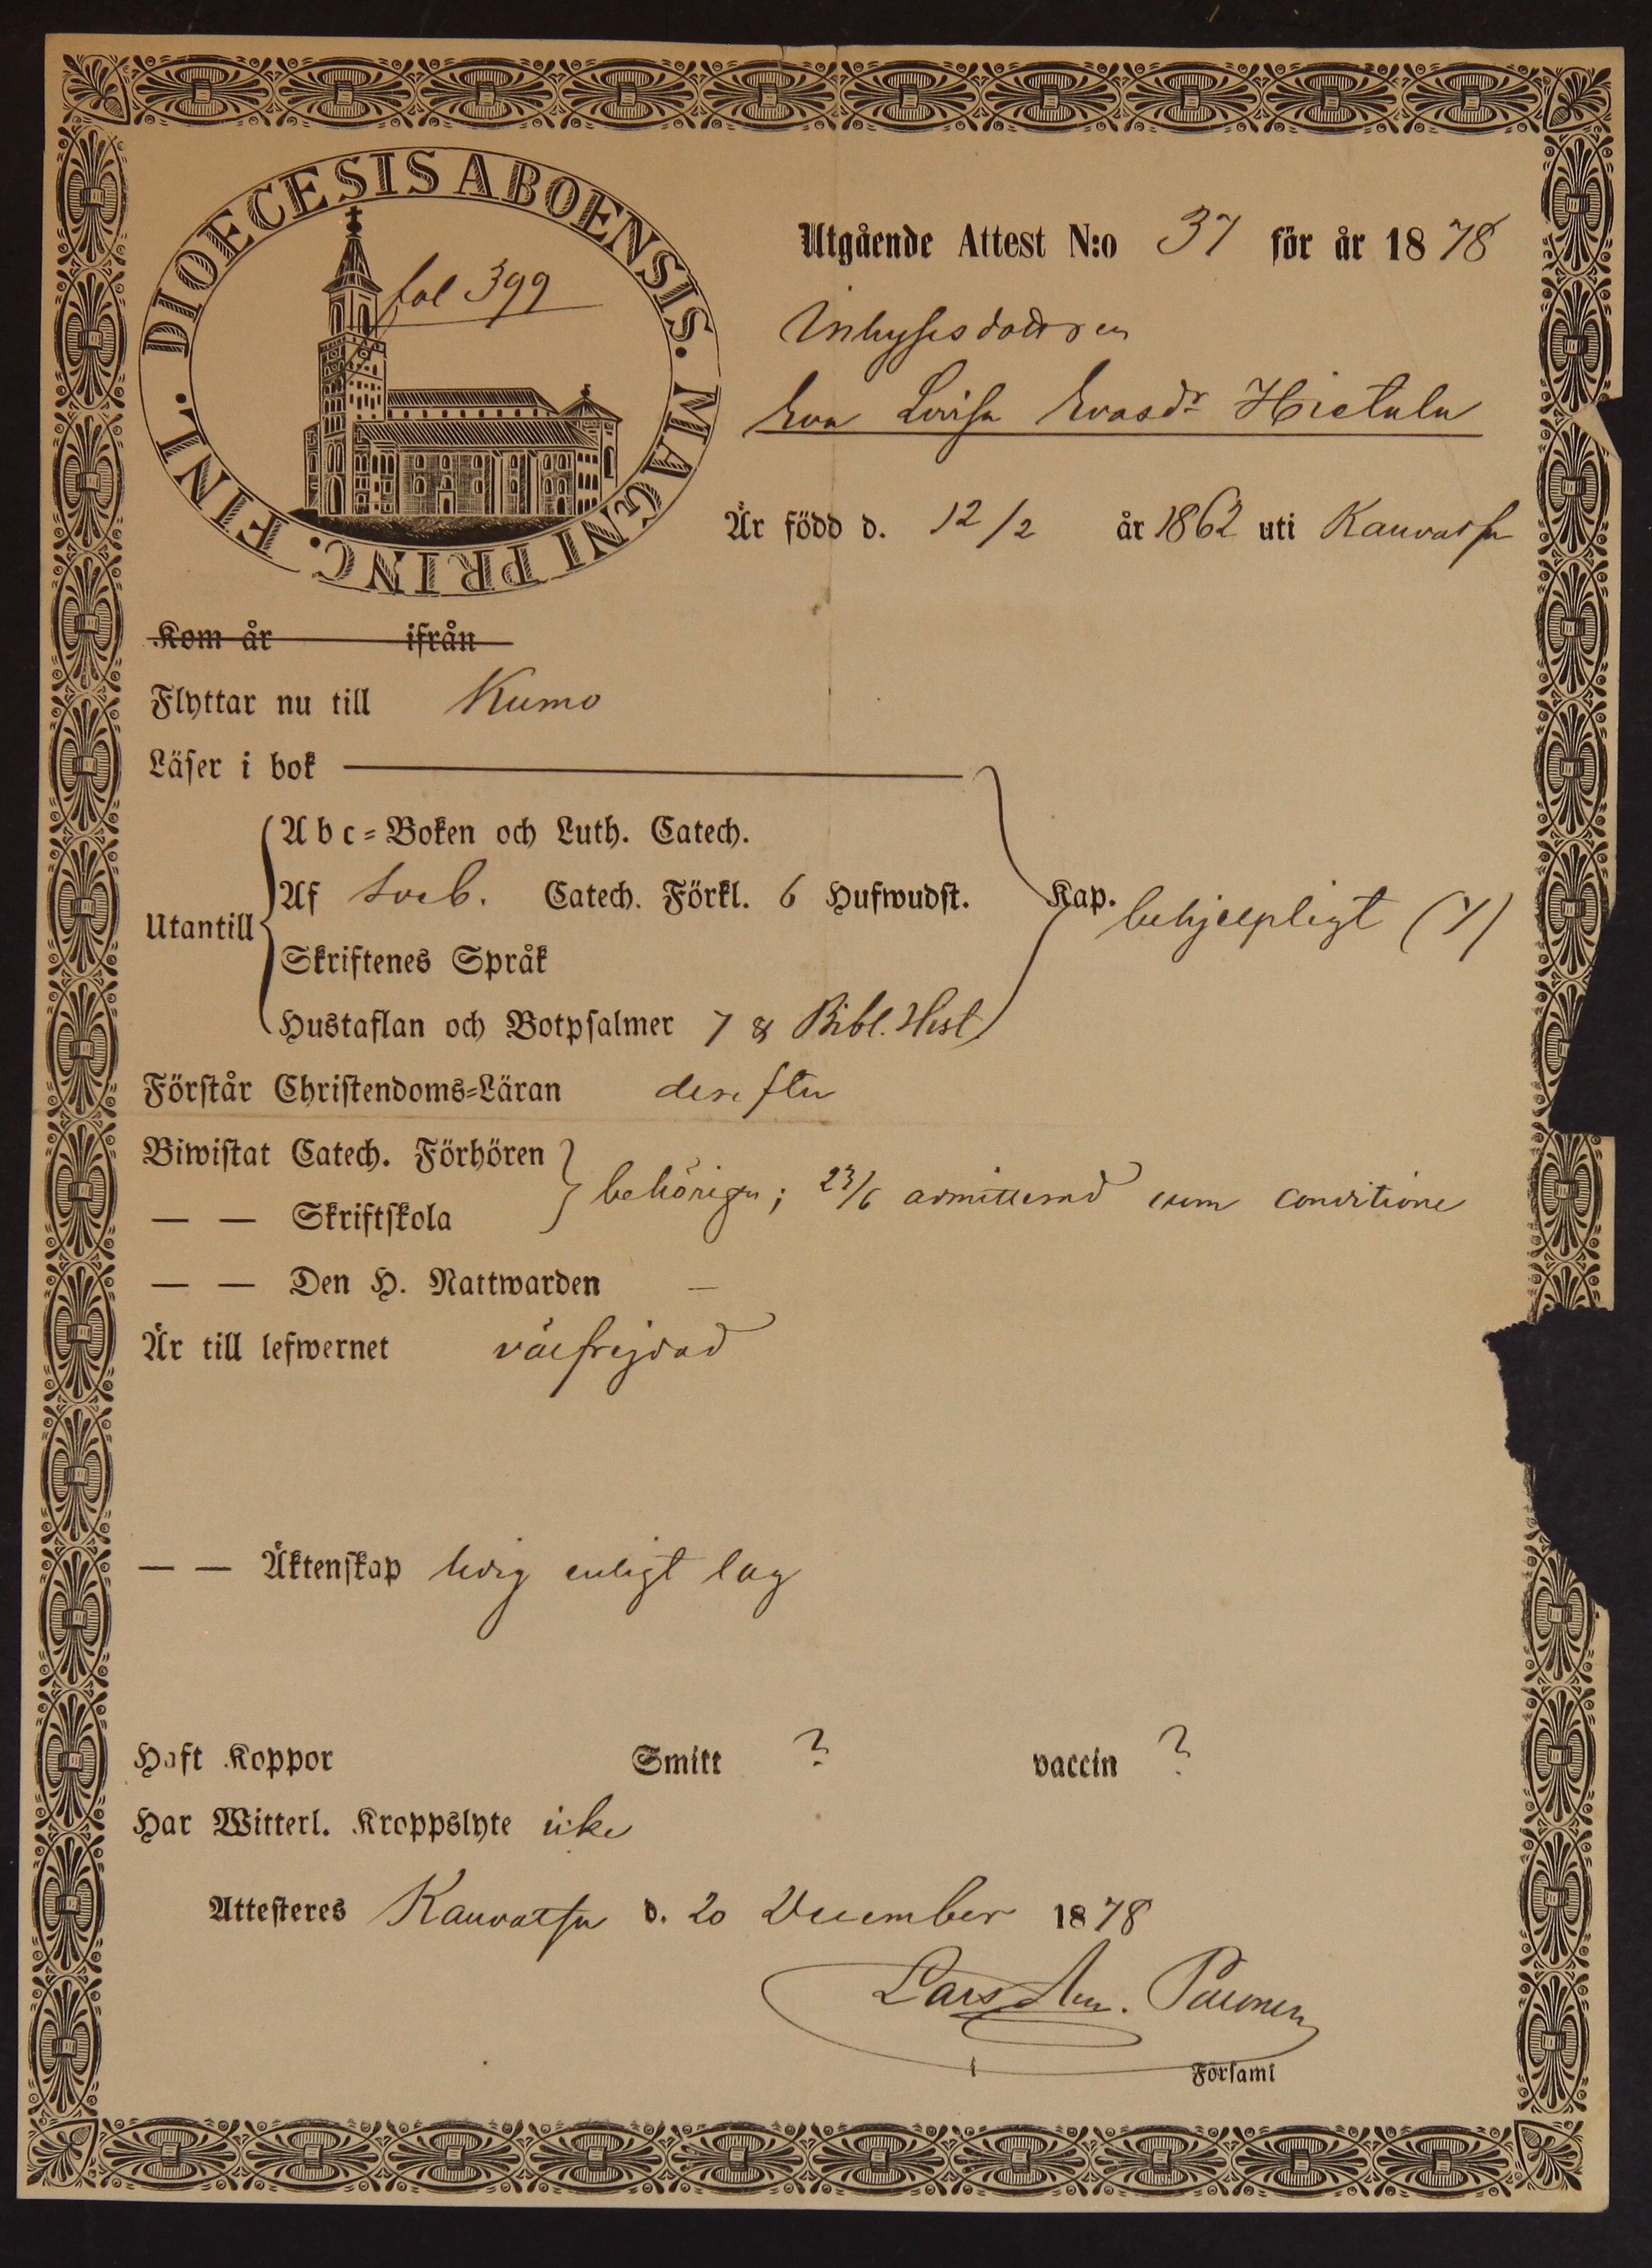 DIOECESIS ABOENSIS. MAGNI PRINC. FINL.
fol 399
Utgående Attest N:o 37 för år 1878
Inhysesdottren
Eva Lovisa Evasdr Hietala
Är född d. 12/2 år 1862 uti Kauvatsa
Kom år ifrån
Flyttar nu till Kumo
Läser i bok
Abc=Boken och Luth. Catech.
Utantill
Af Sveb. Catech. Förkl. 6 Hufwudst. Kap. behjelpligt
Skriftenes Språk
Hustaflan och Botpsalmer 7 & Bibl. Hist
Förstår Christendoms=Läran derefter
Biwistat Catech. Förhören
behörigen; 23/6 admitterad cum conditione
— — Skriftskola
— — Den H. Nattwarden —
Är till lefwernet välfrejdad
— — Äktenskap ledig enligt lag
Haft Koppor Smitt ? vaccin ?
Har Witterl. Kroppslyte icke
Attesteres Kauvatsa d. 20 December 1878
Lars
Församl